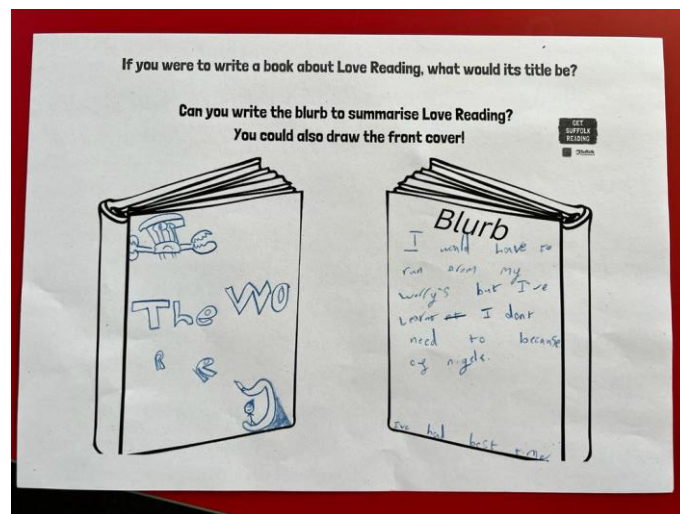 If you were to write a book about Love Reading, what would its title be?
Can you write the blurb to summarise Love Reading?
You could also draw the front cover!
GET
SUFFOLK
READING
The Wo
R R
Blurb
I would have to
run from my
worry's but I've
learnt I don't
need to because
of nigels.
I've had best times